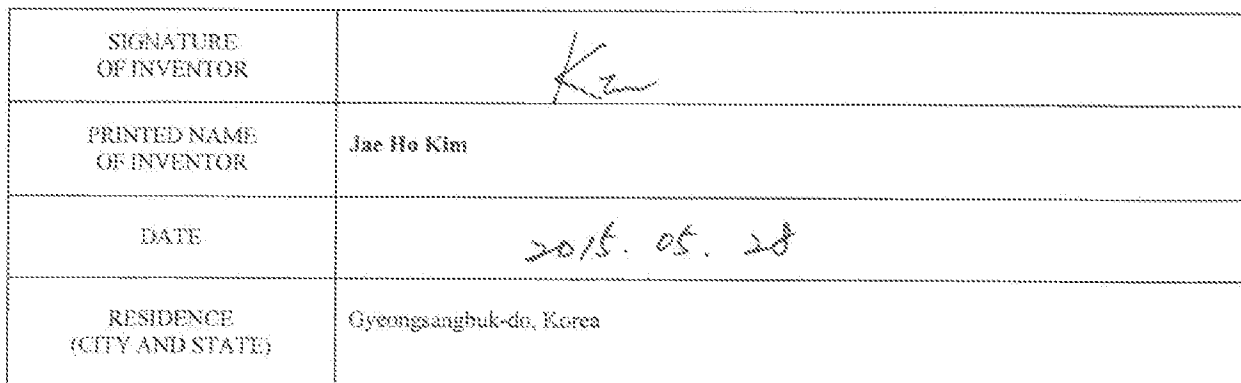 SIGNATURE
OF INVENTOR
PRINTED NAME
OF INVENTOR
Jae Ho Kim
DATE
2015. 05. 28
RESIDENCE
(CITY AND STATE)
Gyeongsangbuk-do, Korea